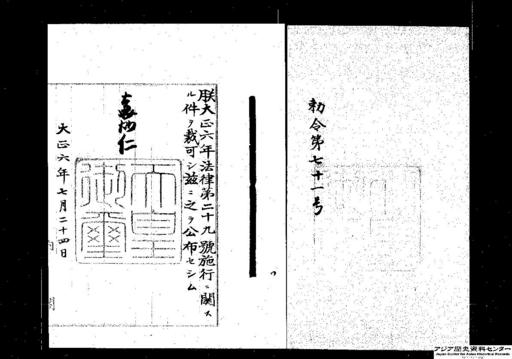 勅令第七十一号
朕大正六年法律第二十九號施行ニ關ス
ル件ヲ裁可シ茲ニ之ヲ公布セシム
嘉仁
天皇御璽
大正六年七月二十四日
アジア歴史資料センター
Japan Center for Asian Historical Records